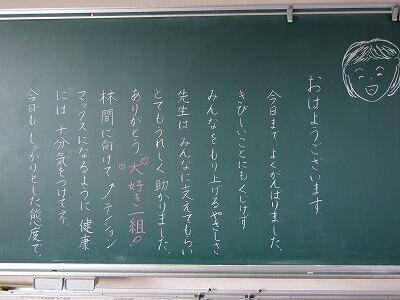 おはようございます
今日まで よくがんばりました。
きびしいことにもくじけず
みんなをもり上げるやさしさ
先生は みんなに支えてもらい
とてもうれしく 助かりました。
ありがとう 大好き一組
林間に向けて ↗テンション
マックスになるように 健康
には 十分気をつけてネ。
今日も しっかりとした態度で、